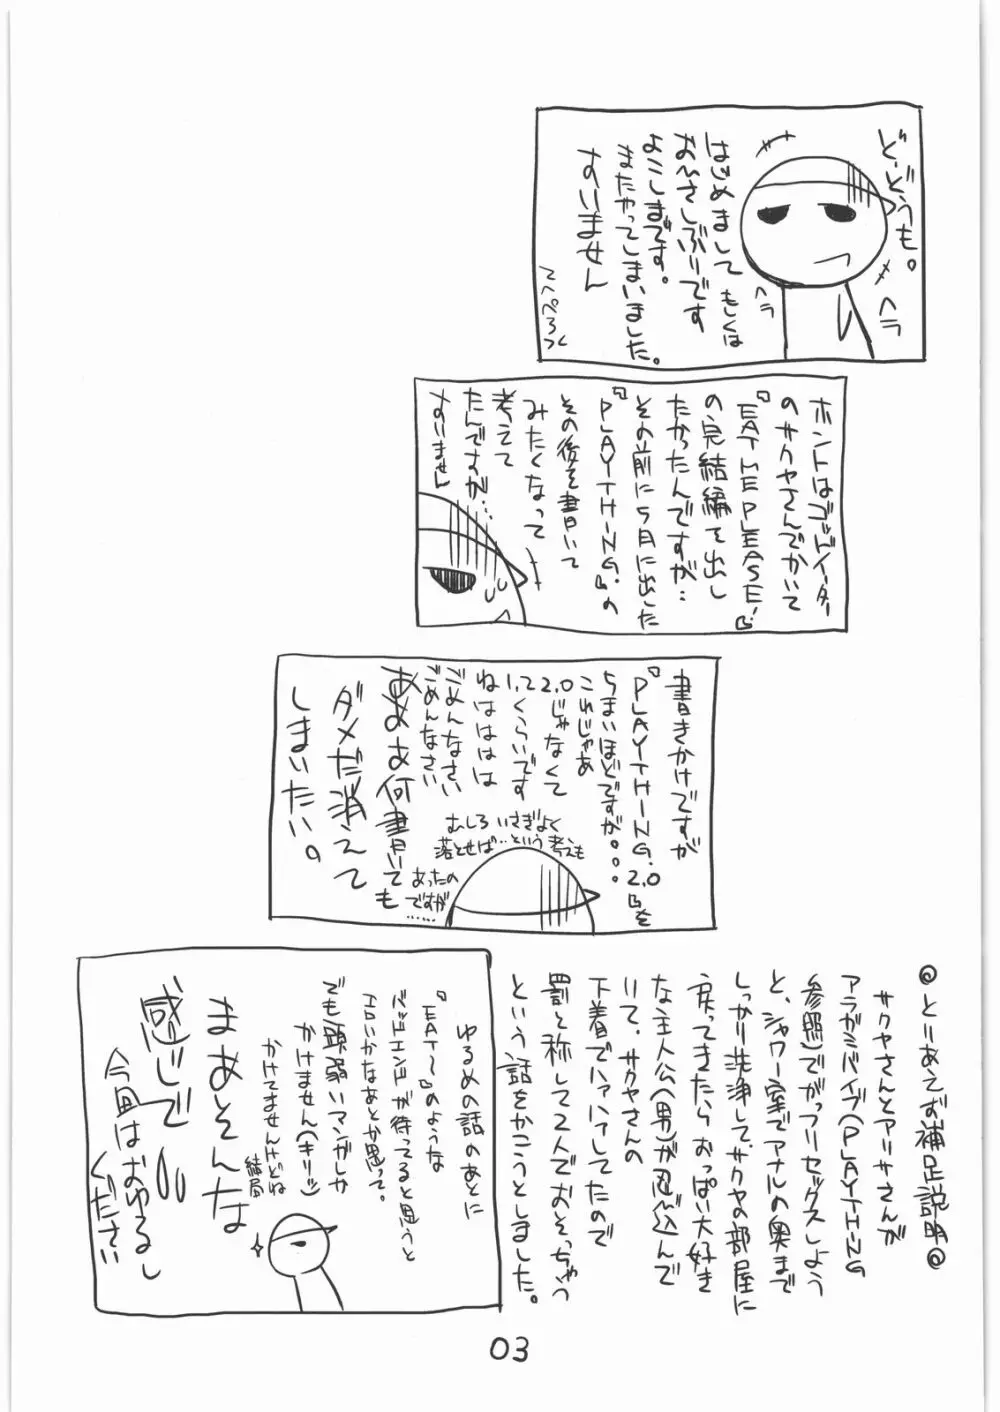 ど、どうも。
ヘラ
ヘラ
はじめまして もしくは
おひさしぶりです
よこしまです。
またやってしまいました。
すいません
ホントはゴッドイーター
のサクヤさんでかいて
『EAT ME PLEASE!』
の完結編を出し
たかったんですが‥
その前に5月に出した
『PLAYTHING.』の
その後を書いて
みたくなって
考えて
たんですが…
すいません
書きかけですが
『PLAYTHING.2.0』を
うまいほどですが。。。
これじゃあ
2.0じゃなくて
1.てくらいです
ねはははは
ごめんなさい
ごめんなさい
ああお何書いても
ダメだ消えて
しまいたい。
むしろいさぎよく
落とせば‥という考えも
あったの
ですが
……
ゆるめの話のあとに
『EAT〜』のような
バッドエンドが待ってると思うと
エロいかなあとか思って。
でも頭弱いマンガしか
かけません(キリッ)
かけてませんけどね
結局
まあそんな
感じで
今回はおゆるし
ください
◎とりあえず補足説明◎
サクヤさんとアリサさんが
アラガミバイブ(PLAYTHING
参照)でがっつりセックスしよう
と、シャワー室でアナルの奥まで
しっかり洗浄して、サクヤの部屋に
戻ってきたらおっぱい大好き
な主人公(男)が忍び込んで
いて、サクヤさんの
下着でハァハァしてたので
罰と称して2人でおそっちゃう
という話をかこうとしました。
03